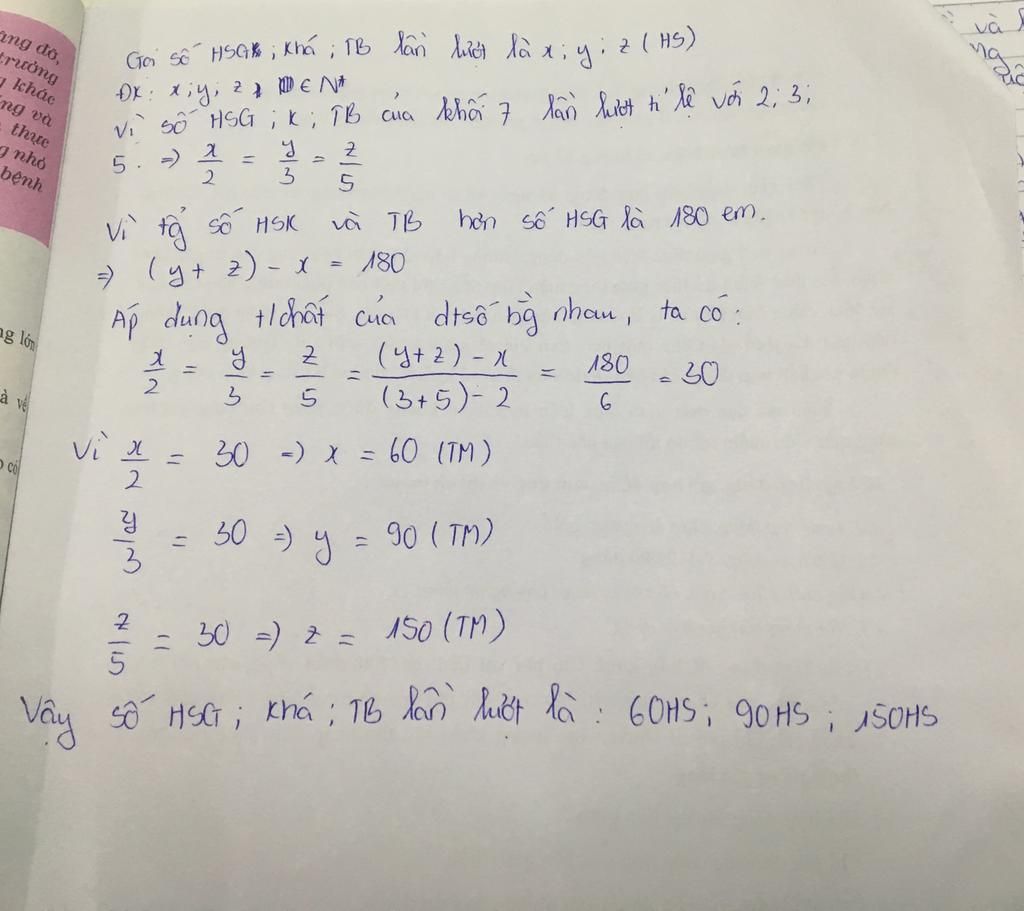 àng đỏ,
trường
g khác
ng và
thực
g nhỏ
bệnh
ng lớn
à vẽ
có
và
Gọi số HSG; khá; TB lần lượt là x; y; z (HS)
ĐK: x; y; z ∈ N*
Vì số HSG; K; TB của khối 7 lần lượt tỉ lệ với 2; 3;
5. => x/2 = y/3 = z/5
Vì tổ̉g số HSK và TB hơn số HSG là 180 em.
=> (y + z) - x = 180
Áp dụng t/chất của dtsố bg̀ nhau, ta có:
x/2 = y/3 = z/5 = ((y+z) - x)/((3+5) - 2) = 180/6 = 30
Vì x/2 = 30 => x = 60 (TM)
y/3 = 30 => y = 90 (TM)
z/5 = 30 => z = 150 (TM)
Vậy số HSG; khá; TB lần lượt là: 60HS; 90HS; 150HS